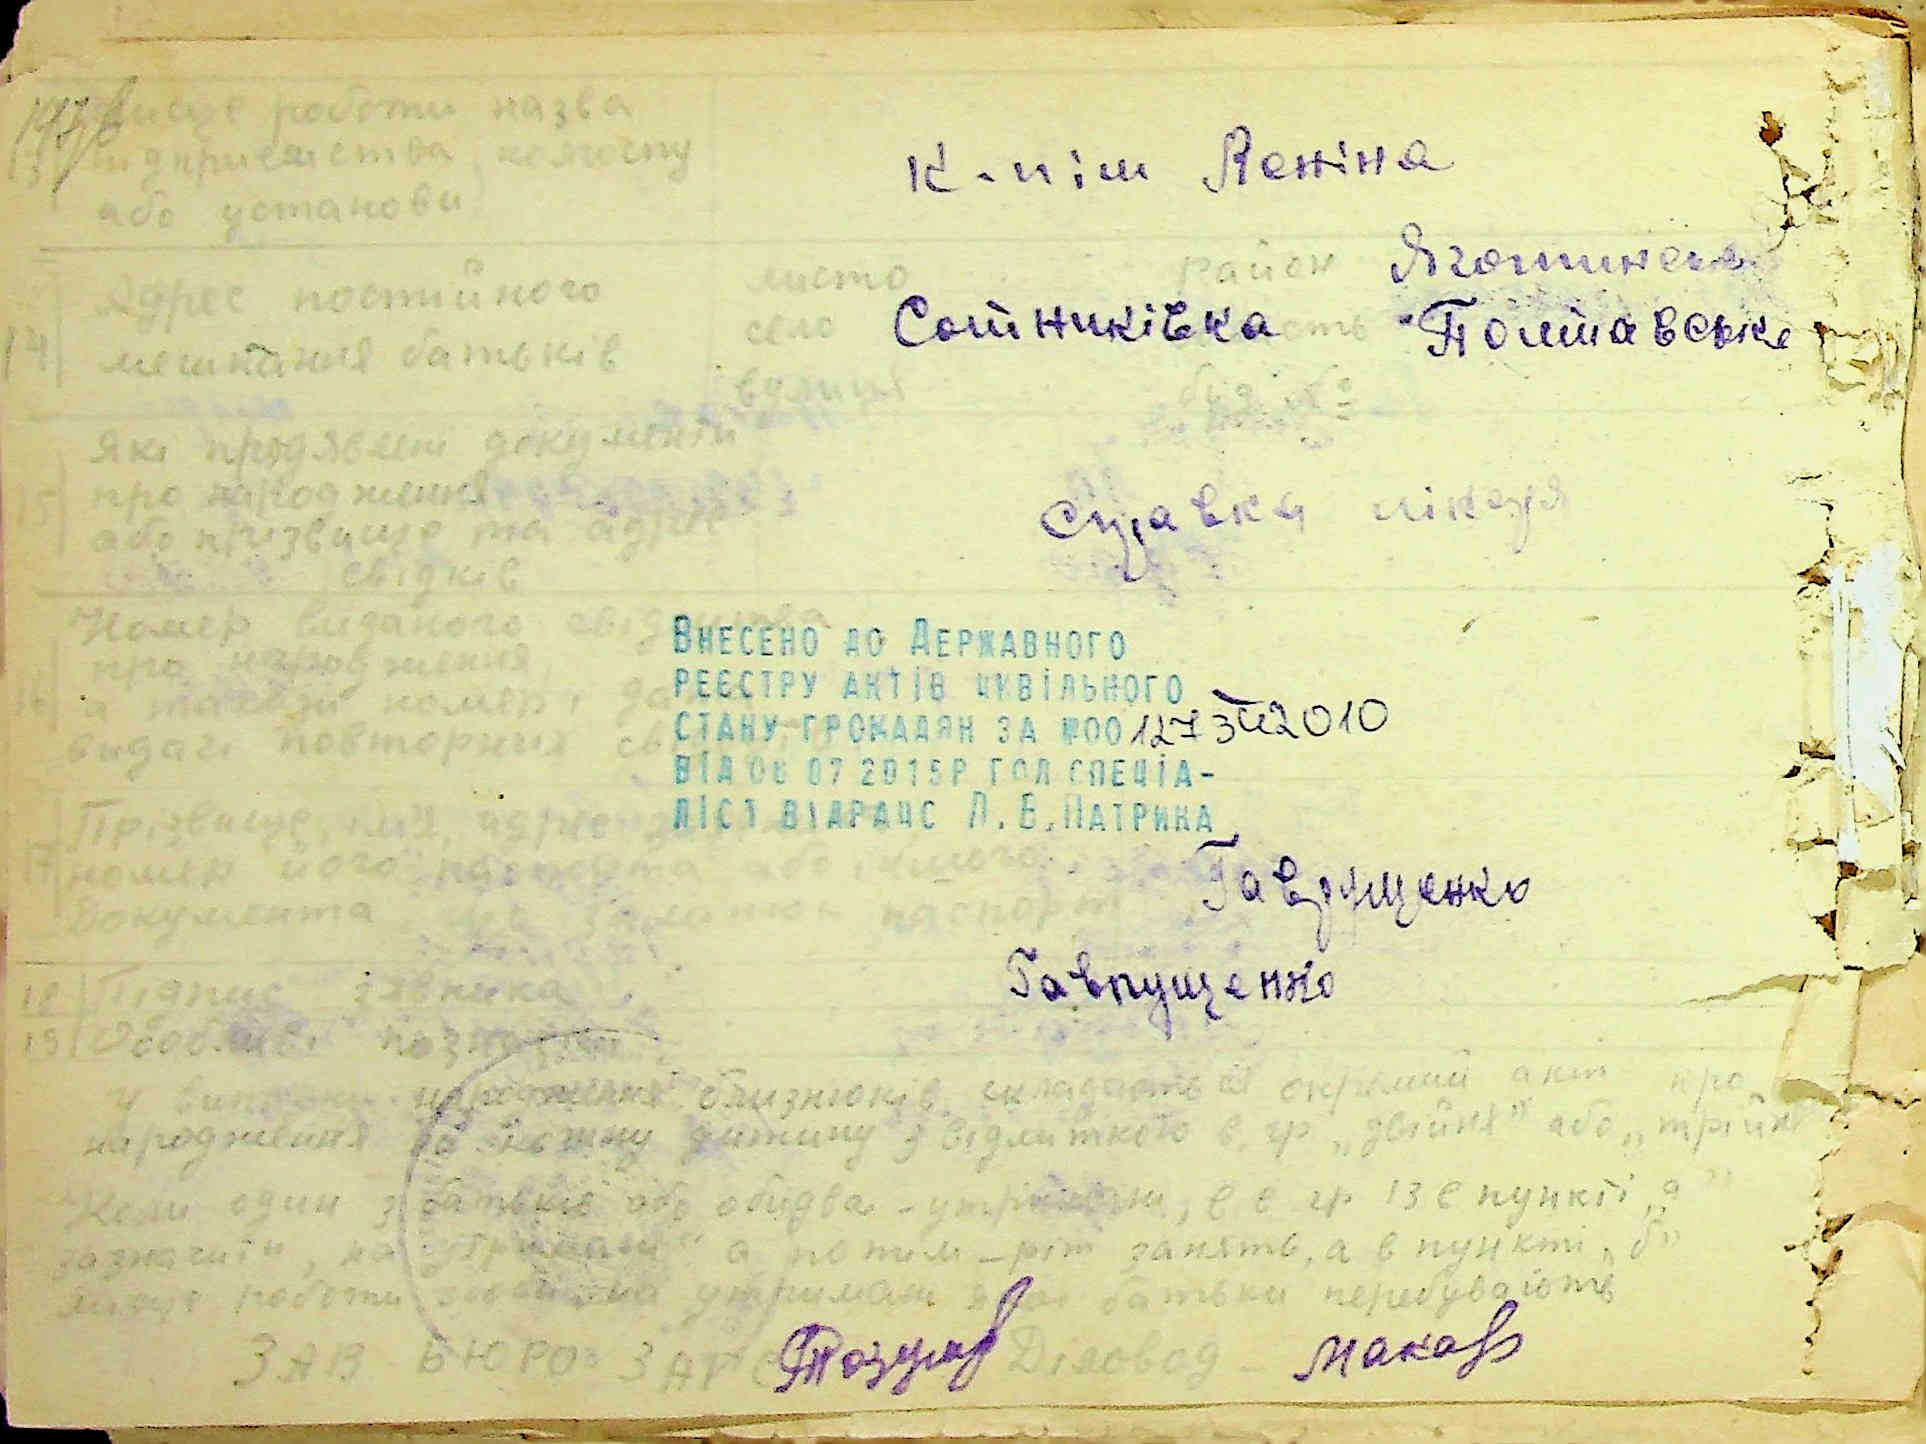 місце роботи назва
13 підприємства, колгоспу
або установи
к-п ім Леніна
14 Адрес постійного
мешкання батьків
место
село Сотниківка
вулиця
район Яготинськ
Полтавська
буд. №
15 Які пред'явлені документи
про народження
або прізвище та адрес
свідків
справка лікаря
16 Номер виданого свідоцтва
про народження,
а також номер і
видачі повторния
ВНЕСЕНО ДО ДЕРЖАВНОГО
РЕЄСТРУ АКТІВ ЦИВІЛЬНОГО
СТАНУ ГРОМАДЯН ЗА №00127
2010
ВІД 06 07 2015Р ГОЛ СПЕЦІА-
ЛІСТ ВІДРАЦС Л.В.ПАТРИКА
17 Прізвище, ім'я, адрес
номер його паспорта або іншого
документа паспорт
Гаврущенко
18 Підпис заявника
Гаврущенко
19 Особливі познач
У випадку народження близнюків складається окремий акт про
народження на кожну дитину з відміткою в гр „двійня" або „трійня
Коли один з батьків або обидва - утриманці, в гр 13 в пункті „а"
зазначити, на утриманні" а потим - рід занять, а в пункті „б"
місце роботи особи на утриманні якої батьки перебувають
ЗАВ БЮРО ЗАГС
Діловод Макар